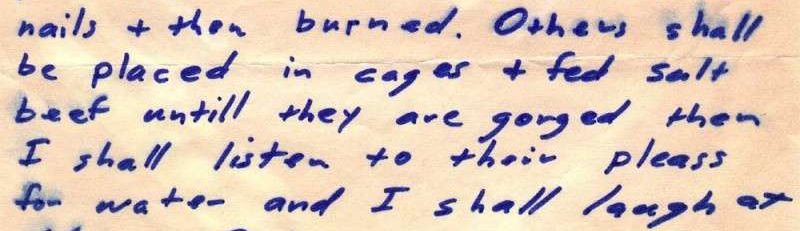 nails + then burned. Others shall
be placed in cages + fed salt
beef untill they are gorged then
I shall listen to their pleass
for water and I shall laugh at